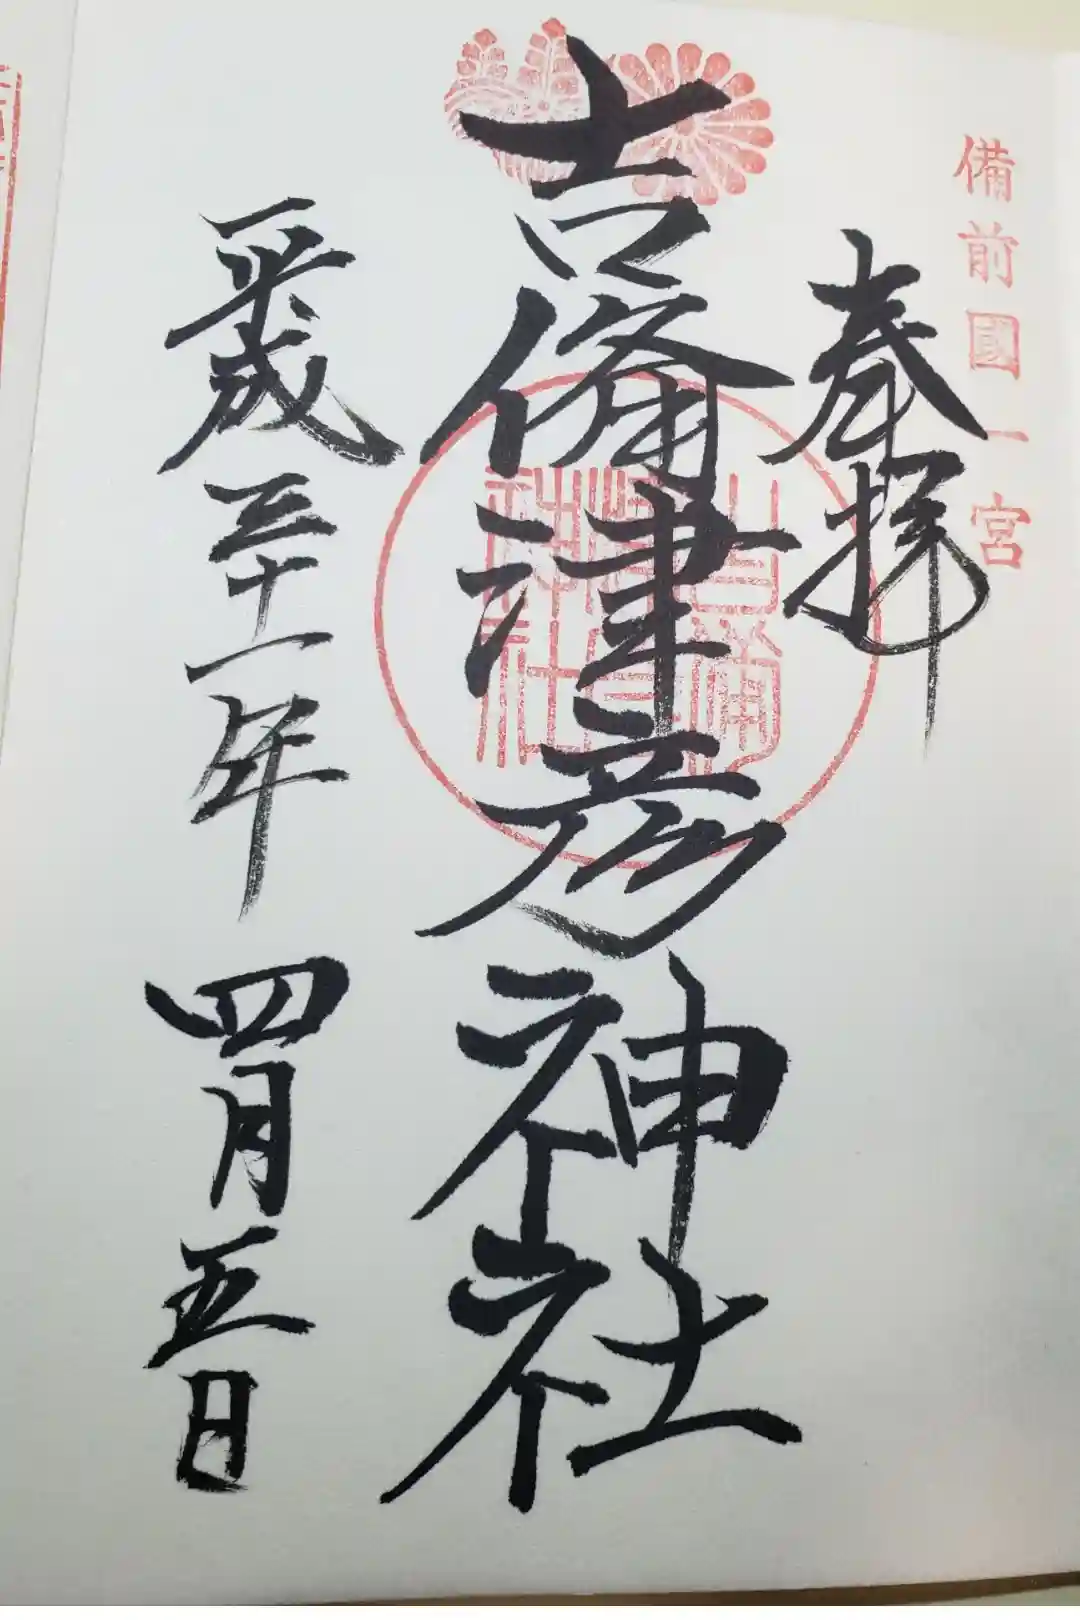 備前國一宮
奉拝
吉備津彦神社
吉備津彦神社
平成三十一年四月五日